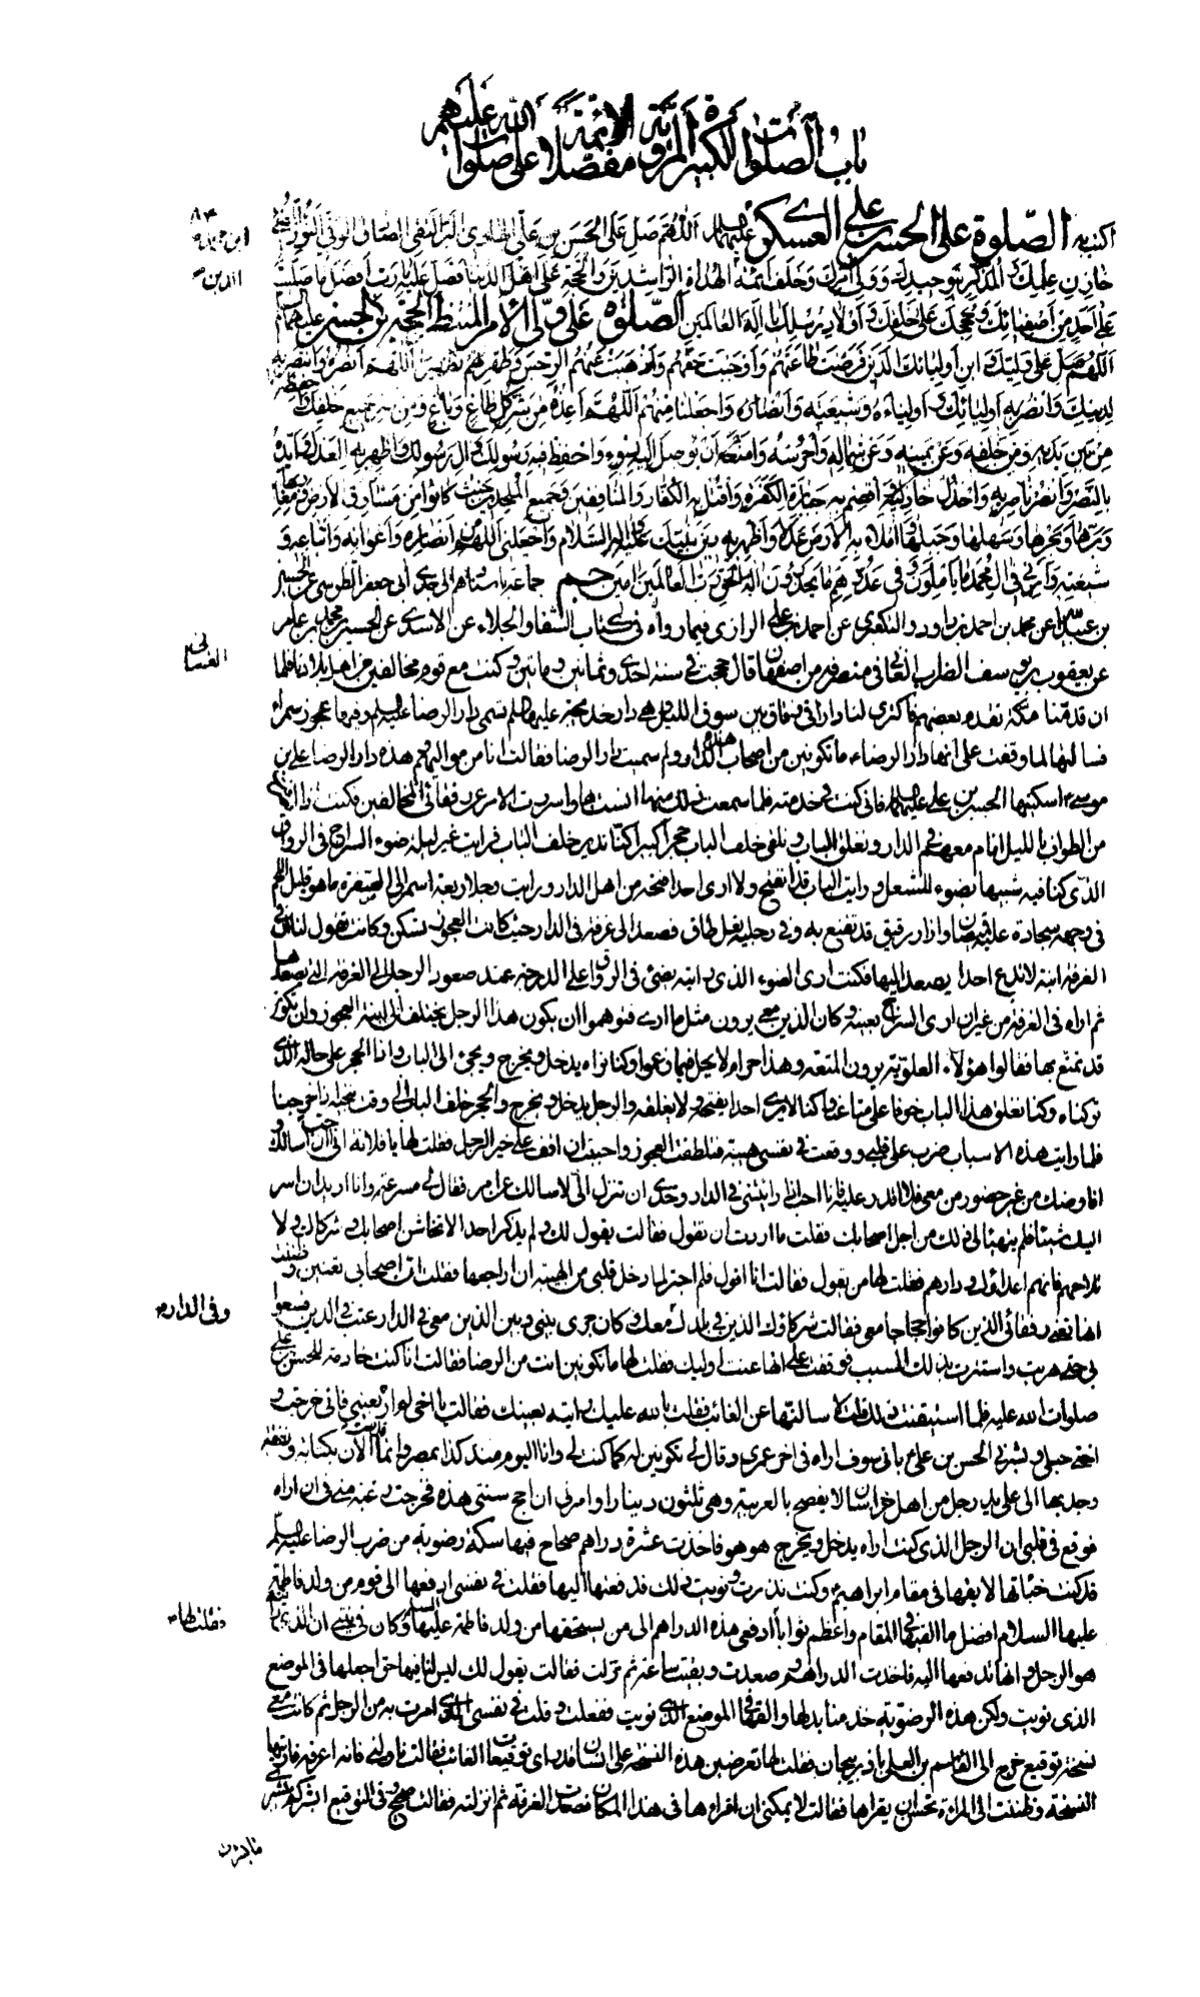 باب الصلوات الكبيرة المروية مفصلا على الائمة صلوات الله عليهم
الصلوة على الحسن بن علي العسكري عليهما السلام اللهم صل على الحسن بن علي الهادي البر التقي الصادق الوفي النور المضيء
خازن علمك والمذكر بتوحيدك وولي امرك وخلف ائمة الهداة الراشدين والحجة على اهل الدنيا فصل عليه يا رب افضل ما صليت
على احد من اصفيائك وحججك على خلقك واولاد رسلك يا اله العالمين الصلوة على ولي الامر المنتظر الحجة بن الحسن عليهما السلام
اللهم صل على وليك وابن اوليائك الذين فرضت طاعتهم واوجبت حقهم واذهبت عنهم الرجس وطهرتهم تطهيرا اللهم انصره وانتصر به
لدينك وانصر به اوليائك واولياءه وشيعته وانصاره واجعلنا منهم اللهم اعذه من شر كل طاغ وباغ ومن شر جميع خلقك واحفظه
من بين يديه ومن خلفه وعن يمينه وعن شماله واحرسه وامنعه ان يوصل اليه بسوء واحفظ فيه رسولك وال رسولك واظهر به العدل وايده
بالنصر وانصر ناصريه واخذل خاذليه واقصم به جبابرة الكفرة واقتل به الكفار والمنافقين وجميع الملحدين حيث كانوا من مشارق الارض ومغاربها
وبرها وبحرها وسهلها وجبلها واملاء به الارض عدلا واظهر به دين نبيك عليه واله السلام واجعلني اللهم من انصاره واعوانه واتباعه و
شيعته وارني في ال محمد ما ياملون وفي عدوهم ما يحذرون اله الحق رب العالمين امين جم جماعة باسنادهم الى جدي ابي جعفر الطوسي عن الحسين
بن عبيد الله عن محمد بن احمد بن داود و عن احمد بن علي الرازي فيما رواه في كتاب الشفاء والجلاء عن الاسدي عن الحسين بن محمد بن عامر
عن يعقوب بن يوسف الضراب الغساني في منصرفه من اصفهان قال حججت في سنة احدى وثمانين ومائتين وكنت مع قوم مخالفين من اهل بلادنا فلما
ان قدمنا مكة تقدم بعضهم فاكترى لنا دارا في زقاق بين سوق الليل وهي دار خديجة عليها السلم تسمى دار الرضا عليه السلم وفيها عجوز سمراء
فسالتها لما وقفت على انها دار الرضاء ما تكونين من اصحاب هذه الدار ولم سميت دار الرضا فقالت انا من مواليهم وهذه دار الرضا علي بن
موسى ء اسكنيها الحسن بن علي عليهما السلم فاني كنت في خدمته فلما سمعت ذلك منها انست بها واسررت الامر عن رفقائي المخالفين فكنت اذا انصرفت
من الطواف بالليل انام معهم في الدار ونغلق الباب ونلقي خلف الباب حجرا كبيرا كنا ندير خلف الباب فرايت غير ليلة ضوء السراج في الرواق
الذي كنا فيه شبيها بضوء المشعل ورايت الباب قد انفتح ولا ارى احدا فتحه من اهل الدار ورايت رجلا ربعة اسمر الى الصفرة ما هو قليل اللحم
في وجهه سجادة عليه قميصان وازار رقيق قد تقنع به وفي رجليه نعل طاق فصعد الى غرفة في الدار حيث كانت العجوز تسكن وكانت تقول لنا ان في
الغرفة ابنة لا تدع احدا يصعد اليها فكنت ارى الضوء الذي رايته يضيء في الرواق على الدرجة عند صعود الرجل الى الغرفة التي يصعدها
ثم اراه في الغرفة من غير ان ارى السراج بعينه وكان الذين معي يرون مثل ما ارى فتوهموا ان يكون هذا الرجل يختلف الى ابنة العجوز وان يكون
قد تمتع بها فقالوا هؤلاء العلوية يرون المتعة وهذا حرام لا يحل فيما زعموا وكنا نراه يدخل ويخرج ويجيء الى الباب واذا الحجر على حاله الذي
تركناه وكنا نغلق هذا الباب خوفا على متاعنا وكنا لا نرى احدا يفتحه ولا يغلقه والرجل يدخل ويخرج والحجر خلف الباب الى وقت ننحيه اذا خرجنا
فلما رايت هذه الاسباب ضرب على قلبي ووقعت في نفسي هيبة فتلطفت العجوز واحببت ان اقف على خبر الرجل فقلت لها يا فلانة اني احب ان اسالك و
افاوضك من غير حضور من معي فلا اقدر عليه فانا احب اذا رايتني في الدار وحدي ان تنزلي الي لاسالك عن امر فقالت لي مسرعة وانا اريد ان اسر
اليك شيئا فلم يتهيا لي ذلك من اجل اصحابك فقلت ما اردت ان تقول فقالت يقول لك ولم يذكر احدا لا تخاشن اصحابك وشركاءك ولا
تلاحهم فانهم اعداؤك ودارهم فقلت لها من يقول فقالت انا اقول فلم اجتر لما دخل قلبي من الهيبة ان اراجعها فقلت اي اصحابي تعنين وظننت
انها تعني رفقائي الذين كانوا حجاجا معي فقالت شركاؤك الذين في بلدك وفي الدار معك وكان جرى بيني وبين الذين معي في الدار عنت في الدين فسعوا
بي حتى هربت واستترت بذلك السبب فوقفت على انها عنت اولئك فقلت لها ما تكونين انت من الرضا فقالت انا كنت خادمة للحسن بن علي
صلوات الله عليه فلما استيقنت ذلك قلت لاسالنها عن الغائب فقلت بالله عليك رايته بعينك فقالت يا اخي لم اره بعيني فاني خرجت و
اختي حبلى وبشرني الحسن بن علي ع باني سوف اراه في اخر عمري وقال لي تكونين له كما كنت لي وانا اليوم منذ كذا بمصر وانما قدمت الان بكتابة ونفقة
وجه بها الي على يد رجل من اهل خراسان لا يفصح بالعربية وهي ثلثون دينارا وامرني ان احج سنتي هذه فخرجت رغبة مني في ان اراه
فوقع في قلبي ان الرجل الذي كنت اراه يدخل ويخرج هو هو فاخذت عشرة دراهم صحاح فيها سكة رضوية من ضرب الرضا عليه السلم
قد كنت خباتها لالقيها في مقام ابراهيم ع وكنت نذرت ونويت ذلك فدفعتها اليها فقلت في نفسي ادفعها الى قوم من ولد فاطمة
عليها السلام افضل مما القيها في المقام واعظم ثوابا فقلت لها ادفعي هذه الدراهم الى من يستحقها من ولد فاطمة عليها السلم وكان في نيتي ان الذي رايته
هو الرجل وانها تدفعها اليه فاخذت الدراهم وصعدت وبقيت ساعة ثم نزلت فقالت يقول لك ليس لنا فيها حق اجعلها في الموضع
الذي نويت ولكن هذه الرضوية خذ منا بدلها والقها في الموضع الذي نويت ففعلت وقلت في نفسي الذي امرت به من الرجل ثم كانت معي
نسخة توقيع خرج الى القاسم بن العلى باذربيجان فقلت لها تعرضين هذه النسخة على انسان قد راى توقيعات الغائب فقالت ناولني فانه اعرفه فاريتها
النسخة وظننت ان المراة تحسن ان يقراها فقالت لا يمكنني ان اقراءها في هذا المكان فصعدت الغرفة ثم انزلته فقالت صحيح وفي التوقيع ابشركم ببشرى
وفي الدار
فقلت لها